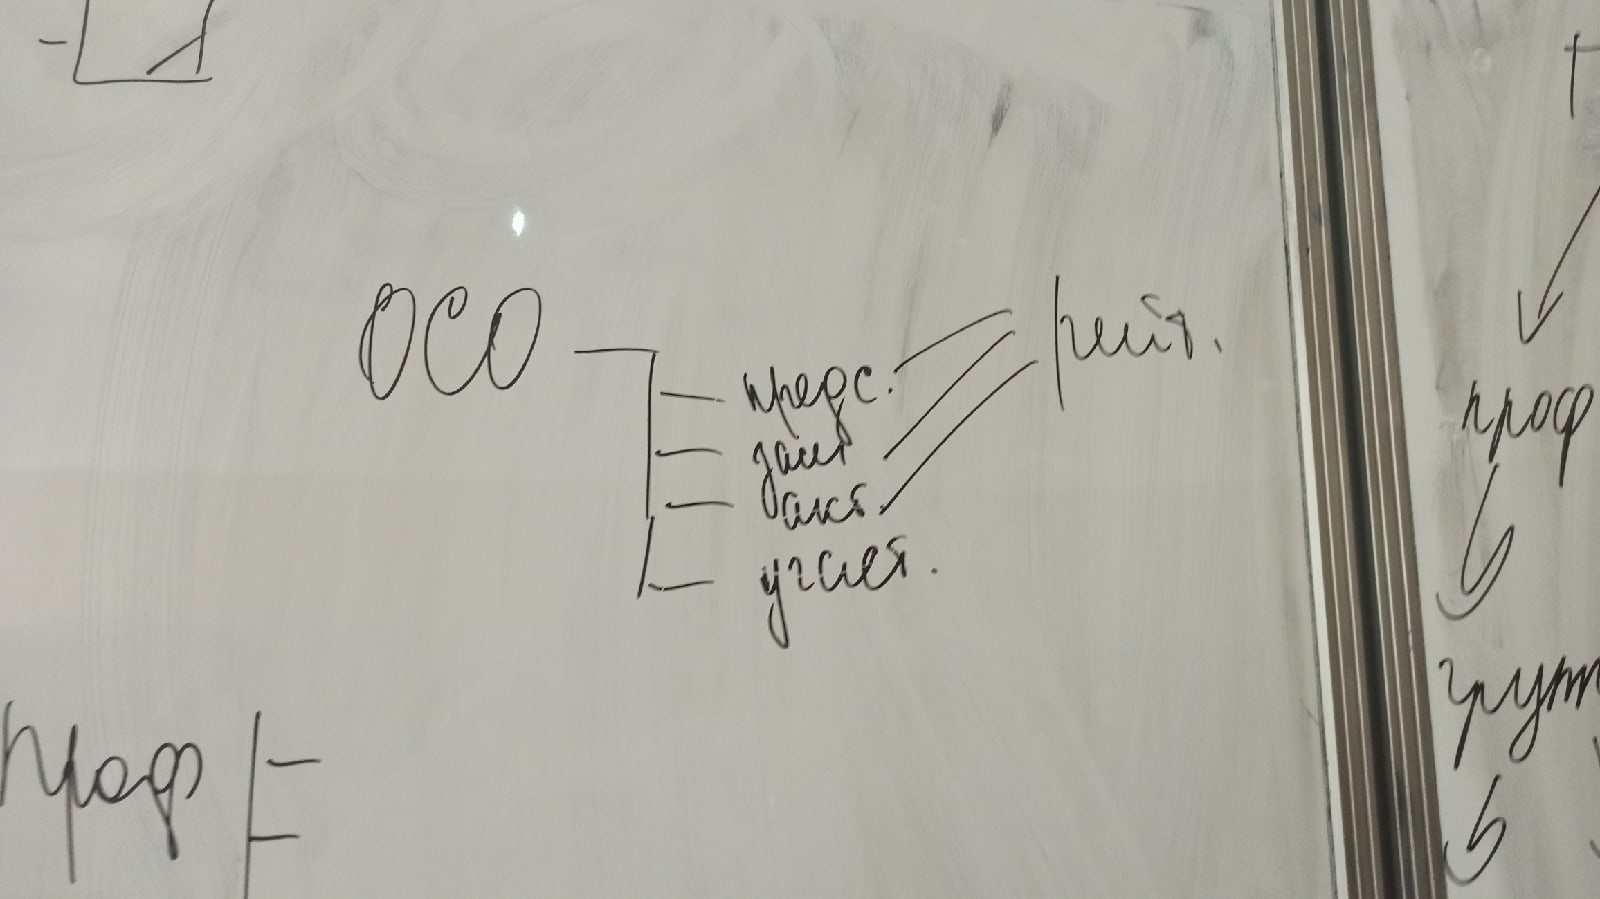 ОСО
предс.
зам
акт.
участ.
рейт.
проф
проф
групп